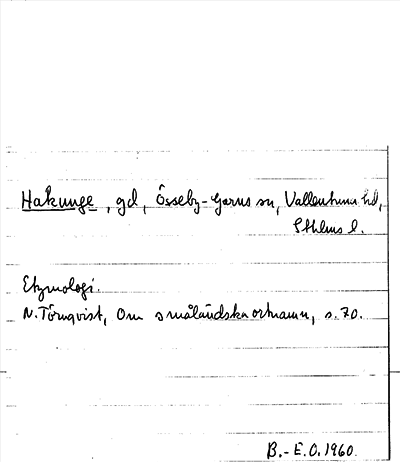 Hakunge, gd, Össeby-Garns sn, Vallentuna hd,
Sthlms l.
Etymologi.
N. Törnqvist, Om småländska ortnamn, s. 70.
B.-E.O. 1960.